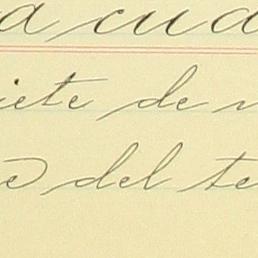 a cua
iete de n
e del te